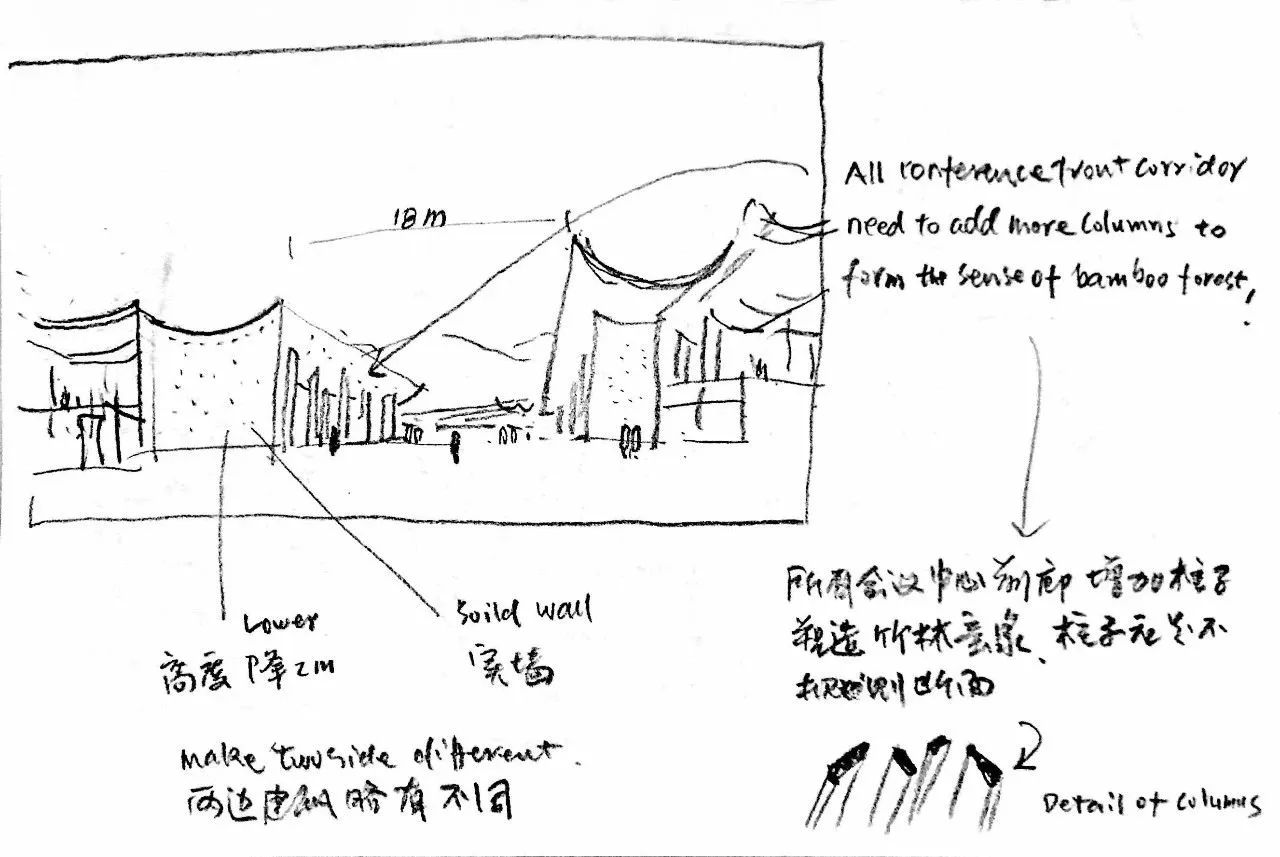 18m
All conference front corridor
need to add more columns to
form the sense of bamboo forest,
Lower
高度降2m
Soild wall
实墙
所有会议中心前廊增加柱子
塑造竹林意象、柱子元是不
规则断面
make twoside different.
两边建筑略有不同
Detail of columns